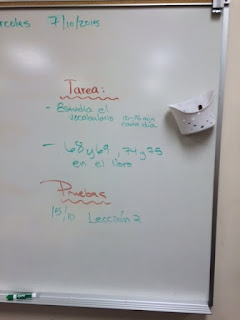 ércoles 7/10/2015
Tarea:
- Estudia el
vocabulario 10-15 min
cada día
- 68 y 69, 74 y 75
en el libro
Pruebas
15/10 Lección 2